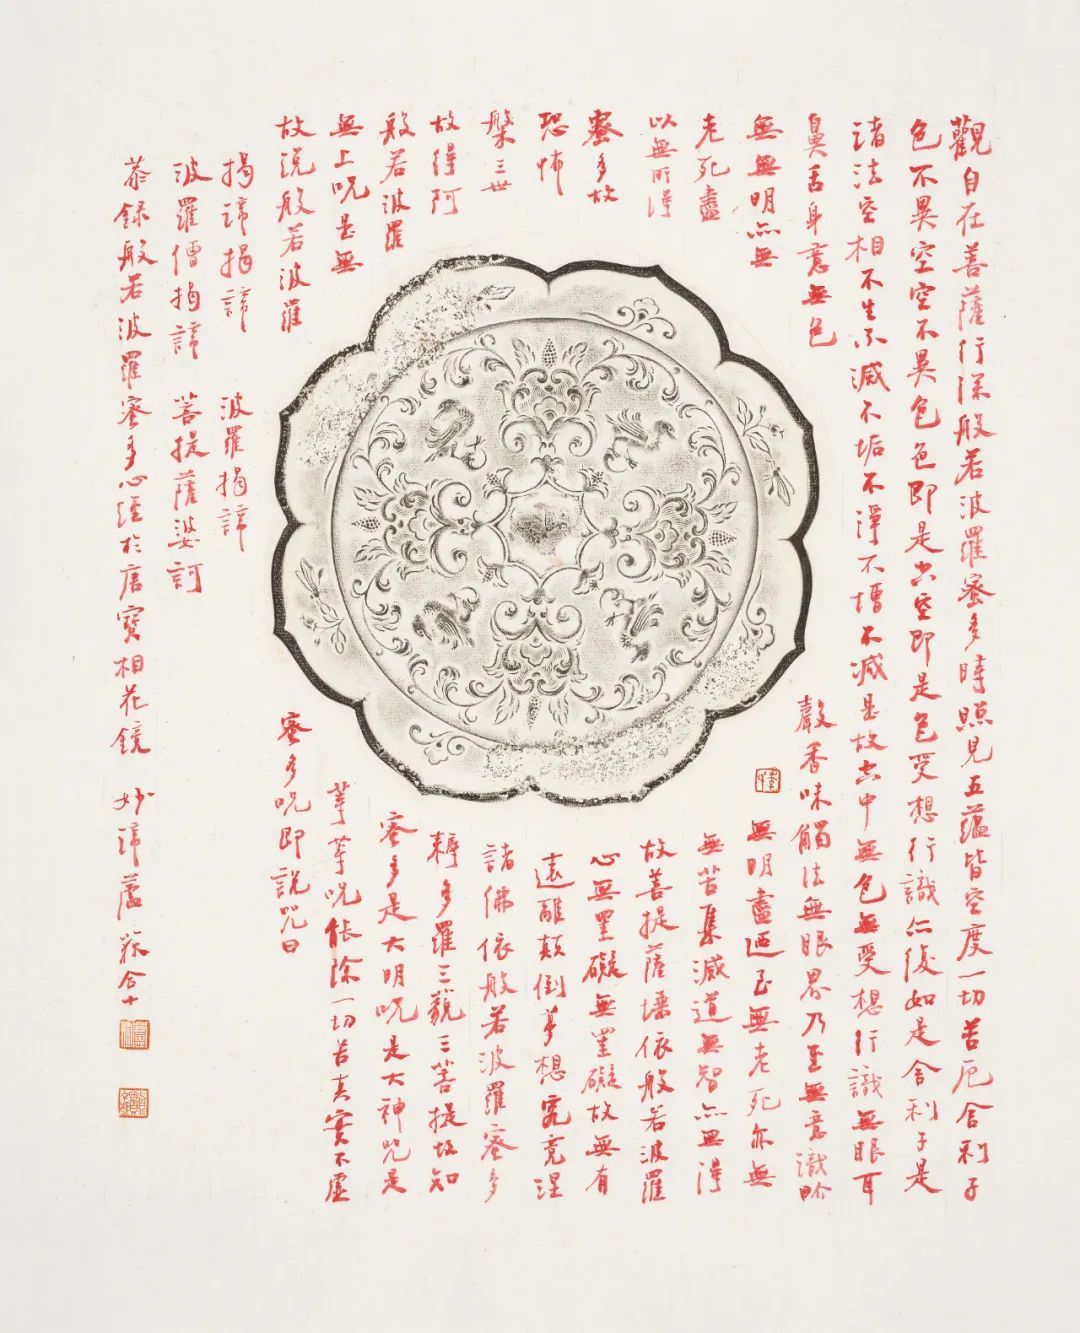 觀自在菩薩行深般若波羅蜜多時照見五蘊皆空度一切苦厄舍利子
色不異空空不異色色即是空空即是色受想行識亦復如是舍利子是
諸法空相不生不滅不垢不淨不增不減是故空中無色無受想行識無眼耳
鼻舌身意無色 聲香味觸法無眼界乃至無意識界
無無明亦無 無明盡迺至無老死亦無
老死盡 無苦集滅道無智亦無得
以無所得 故菩提薩埵依般若波羅
蜜多故 心無罣礙無罣礙故無有
恐怖 遠離顛倒夢想究竟涅
槃三世 諸佛依般若波羅蜜多
故得阿 耨多羅三藐三菩提故知
般若波羅 蜜多是大明呪是大神咒是
無上呪是無 等等呪能除一切苦真實不虛
故說般若波羅 蜜多呪即說咒曰
揭諦揭諦 波羅揭諦
波羅僧揭諦 菩提薩婆訶
恭録般若波羅蜜多心經於唐寶相花鏡 妙諦蘆 合十